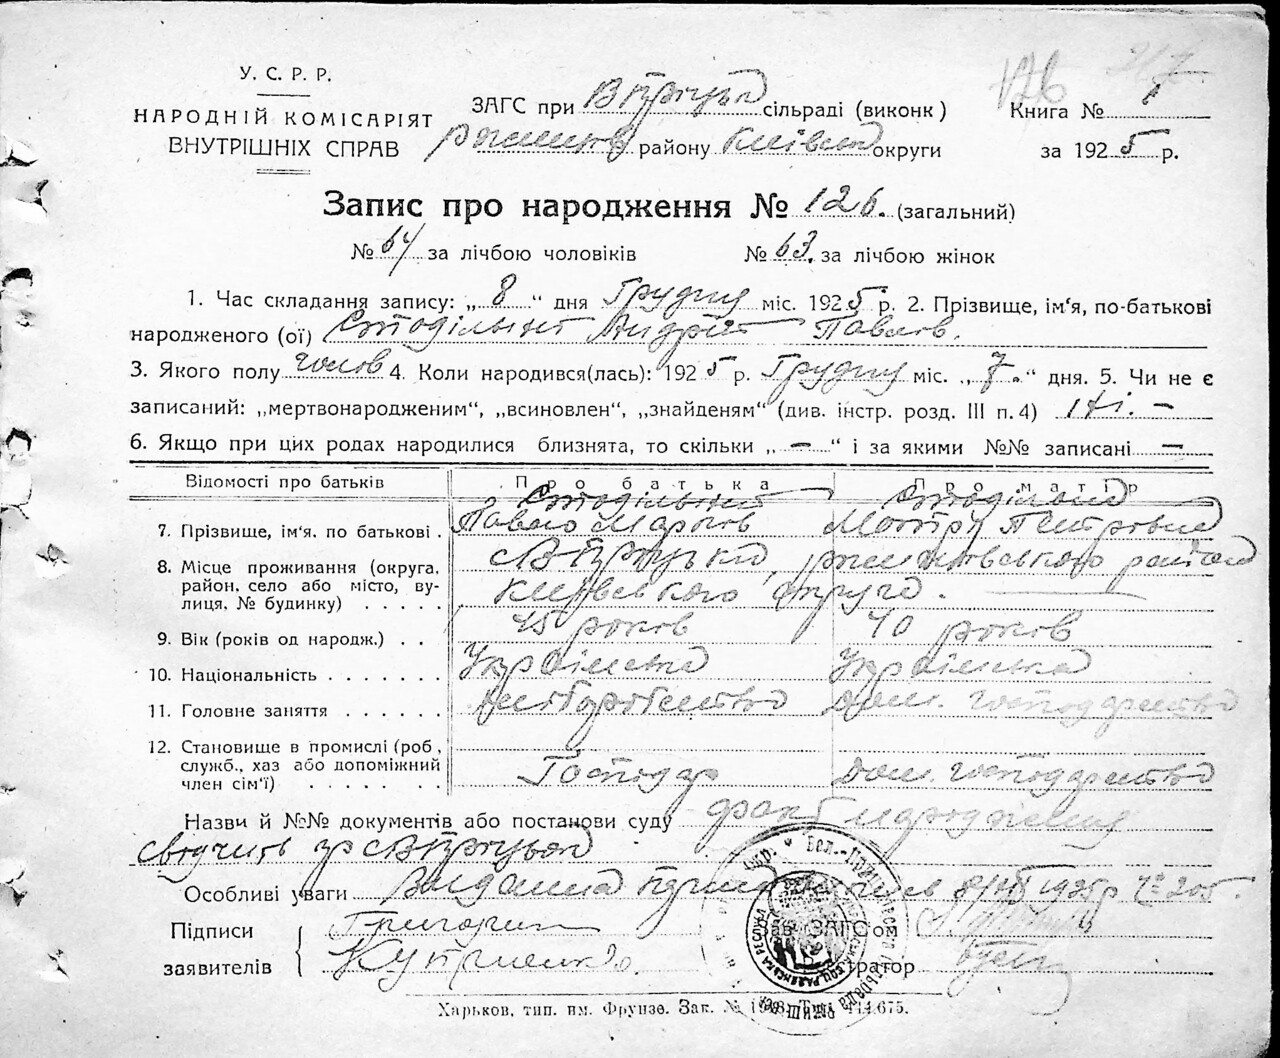 У. С. Р. Р.
НАРОДНІЙ КОМІСАРІЯТ
ВНУТРІШНІХ СПРАВ
ЗАГС при сільраді (виконк)
району округи
Книга № 1
за 1925 р.
126
217
Запис про народження № 126. (загальний)
№ 64 за лічбою чоловіків № 63. за лічбою жінок
1. Час складання запису: „8“ дня Грудня міс. 1925 р. 2. Прізвище, ім'я, по-батькові
народженого (ої) Стодільний Андрій Павлов.
3. Якого полу чолов 4. Коли народився(лась): 1925 р. Грудня міс. „7.“ дня. 5. Чи не є
записаний: „мертвонародженим“, „всиновлен“, „знайденям“ (див. інстр. розд. III п. 4) Ні. –
6. Якщо при цих родах народилися близнята, то скільки „–“ і за якими №№ записані –
Відомості про батьків Про батька Про матір
7. Прізвище, ім'я. по батькові . Стодільний Павло Марков Стодільна Мотря Петровна
8. Місце проживання (округа,
район, село або місто, ву-
лиця, № будинку) . . . . . Київського округа.
9. Вік (років од народж.) . . 45 років 40 років
10. Національність . . . . . . . Українська Українська
11. Головне заняття . . . . . . Дом. господарство
12. Становище в промислі (роб,
служб., хаз або допоміжний
член сім'ї) . . . . . . . Господар Дом. господарство
Назви й №№ документів або постанови суду факт народження
свідчить
Особливі уваги 1925 р № 205.
Підписи
заявителів
Григорий
Кутриенко
Зав. ЗАГС'ом
тратор
Харьков, тип. им. Фрунзе. Зак. №